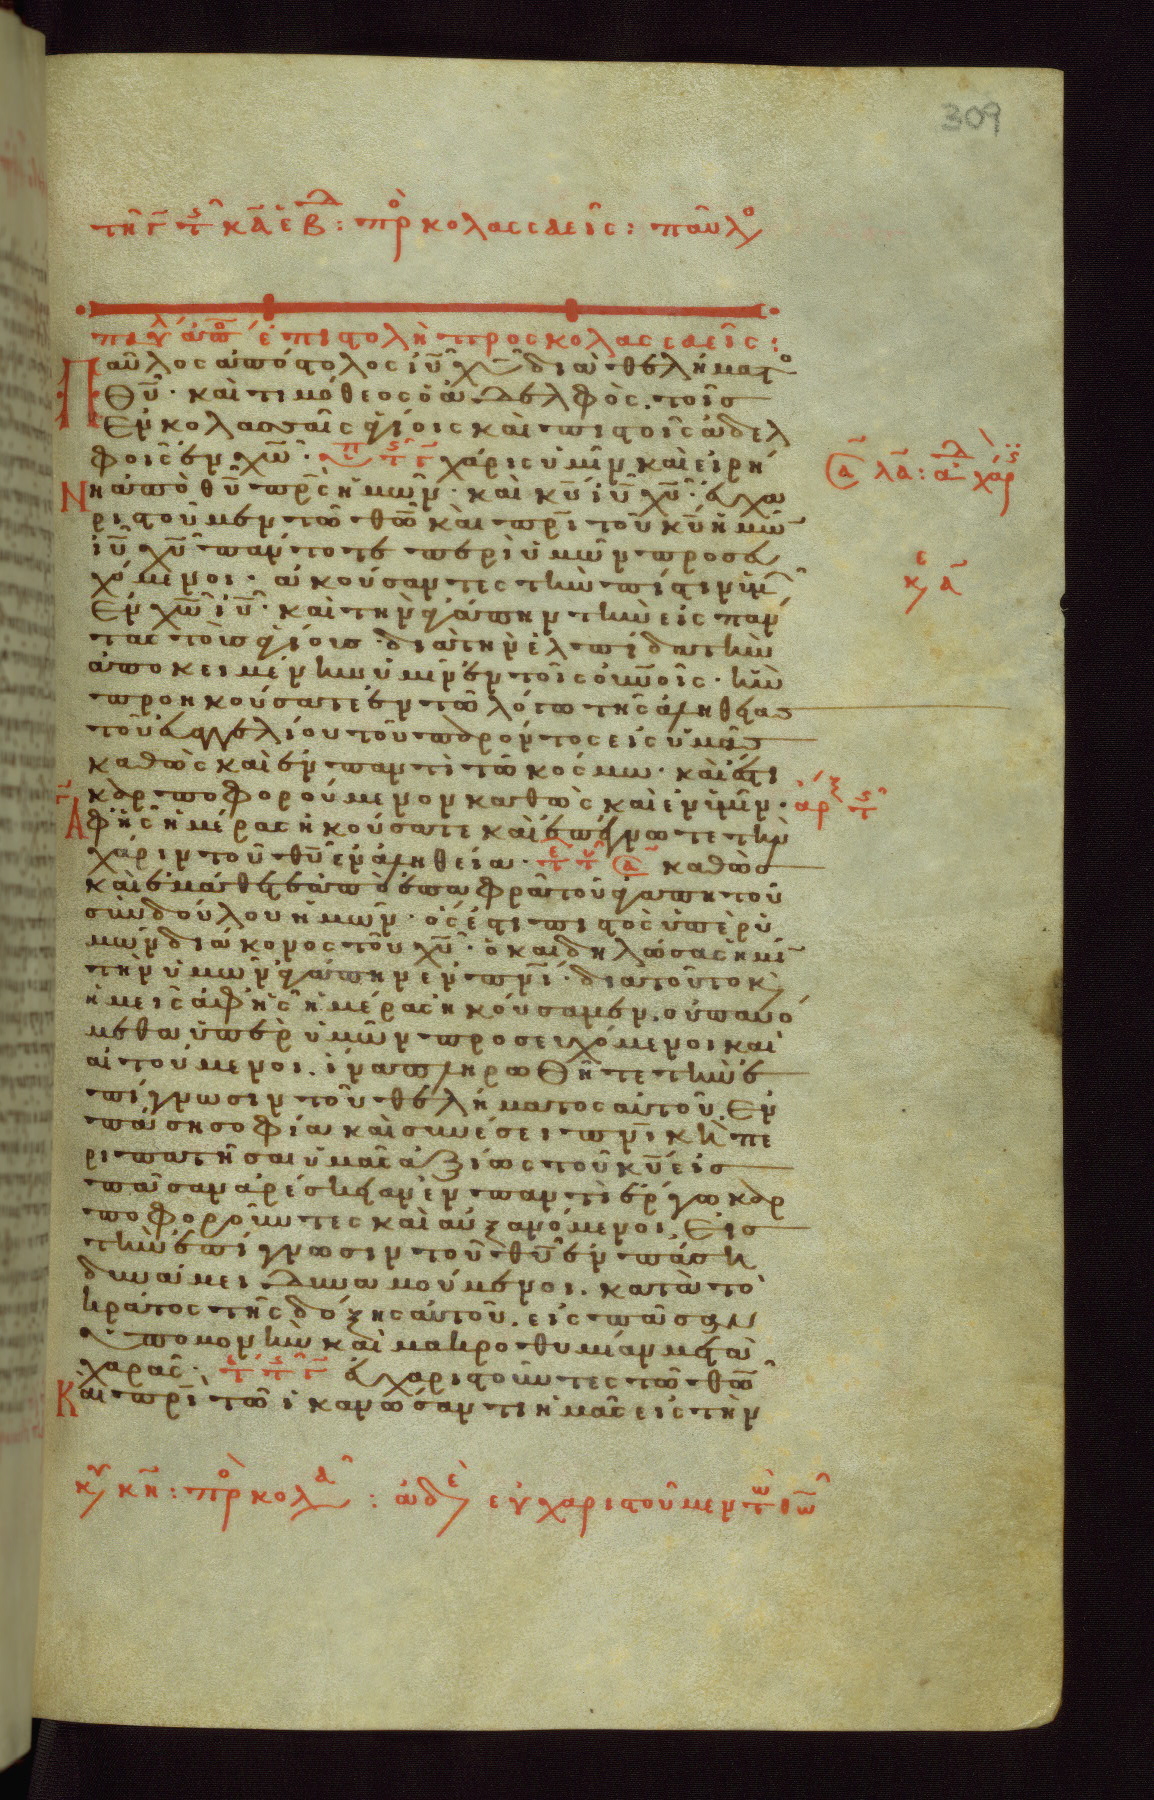 309
τῇ γ τ κδ ε β : πρ κολασσαεῖς : παῦλο
παύλ ἀπο ἐπιστολὴ προς κολασσαεῖς :
Παῦλος ἀπόστολος ἰῦ χῦ διὰ θελήματο
θῦ · καὶ τιμόθεος ὁ ἀδελφὸς . τοῖς
ἐν κολασσαῖς ἁγίοις καὶ πιστοῖς ἀδελ
φοῖς ἐν χῶ · χάρις ὑμῖν καὶ εἰρή
νη ἀπὸ θῦ πρς ἡμῶν · καὶ κῦ ἰῦ χῦ · εὐχα
ριστοῦμεν τῶ θῶ καὶ πρι τοῦ κῦ ἡμῶ
ἰῦ χῦ πάντοτε περὶ ὑμῶν προσευ
χόμενοι · ἀκούσαντες τὴν πίστιν ὑμ
ἐν χῶ ἰῦ · καὶ τὴν ἀγάπην τὴν εἰς πάν
τας τοὺς ἁγίους · διὰ τὴν ἐλπίδα τὴν
ἀποκειμένην ὑμῖν ἐν τοῖς οὐνοῖς · ἣν
προηκούσατε ἐν τῶ λόγω τῆς ἀληθείας
τοῦ εὐαγγελίου τοῦ παρόντος εἰς ὑμᾶς
καθὼς καὶ ἐν παντὶ τῶ κόσμω · καὶ ἔστι
καρποφορούμενον καθὼς καὶ ἐν ὑμῖν · ἀρξ
ἀφ ἧς ἡμέρας ἠκούσατε καὶ ἐπέγνωτε τὴν
χάριν τοῦ θῦ ἐν ἀληθεία · καθὼς
καὶ ἐμάθετε ἀπὸ ἐπαφρᾶ τοῦ ἀγαπητοῦ
συνδούλου ἡμῶν · ὅς ἐστι πιστὸς ὑπὲρ ὑ
μῶν διάκονος τοῦ χῦ · ὁ καὶ δηλώσας ἡμῖ
τὴν ὑμῶν ἀγάπην ἐν πνι · διὰ τοῦτο κ
ἡμεῖς ἀφ ἧς ἡμέρας ἠκούσαμεν . οὐ παυό
μεθα ὑπὲρ ὑμῶν προσευχόμενοι καὶ
αἰτούμενοι . ἵνα πληρωθῆτε τὴν ἐ
πίγνωσιν τοῦ θελήματος αὐτοῦ . ἐν
πάση σοφία καὶ συνέσει πνικῆ πε
ριπατῆσαι ὑμᾶς ἀξίως τοῦ κῦ εἰς
πᾶσαν ἀρέσκειαν ἐν παντὶ ἔργω καρ
ποφοροῦντες καὶ αὐξανόμενοι . εἰς
τὴν ἐπίγνωσιν τοῦ θῦ ἐν πάση
δυνάμει δυναμούμενοι . κατὰ τὸ
κράτος τῆς δόξης αὐτοῦ . εἰς πᾶσαν
ὑπομονὴν καὶ μακροθυμίαν μετὰ
χαρᾶς · εὐχαριστοῦντες τῶ θῶ
Καὶ πρι τῶ ἱκανώσαντι ἡμᾶς εἰς τὴν
κυ κη : πρ κολα : ἀδε εὐχαριστοῦμεν τῶ θῶ